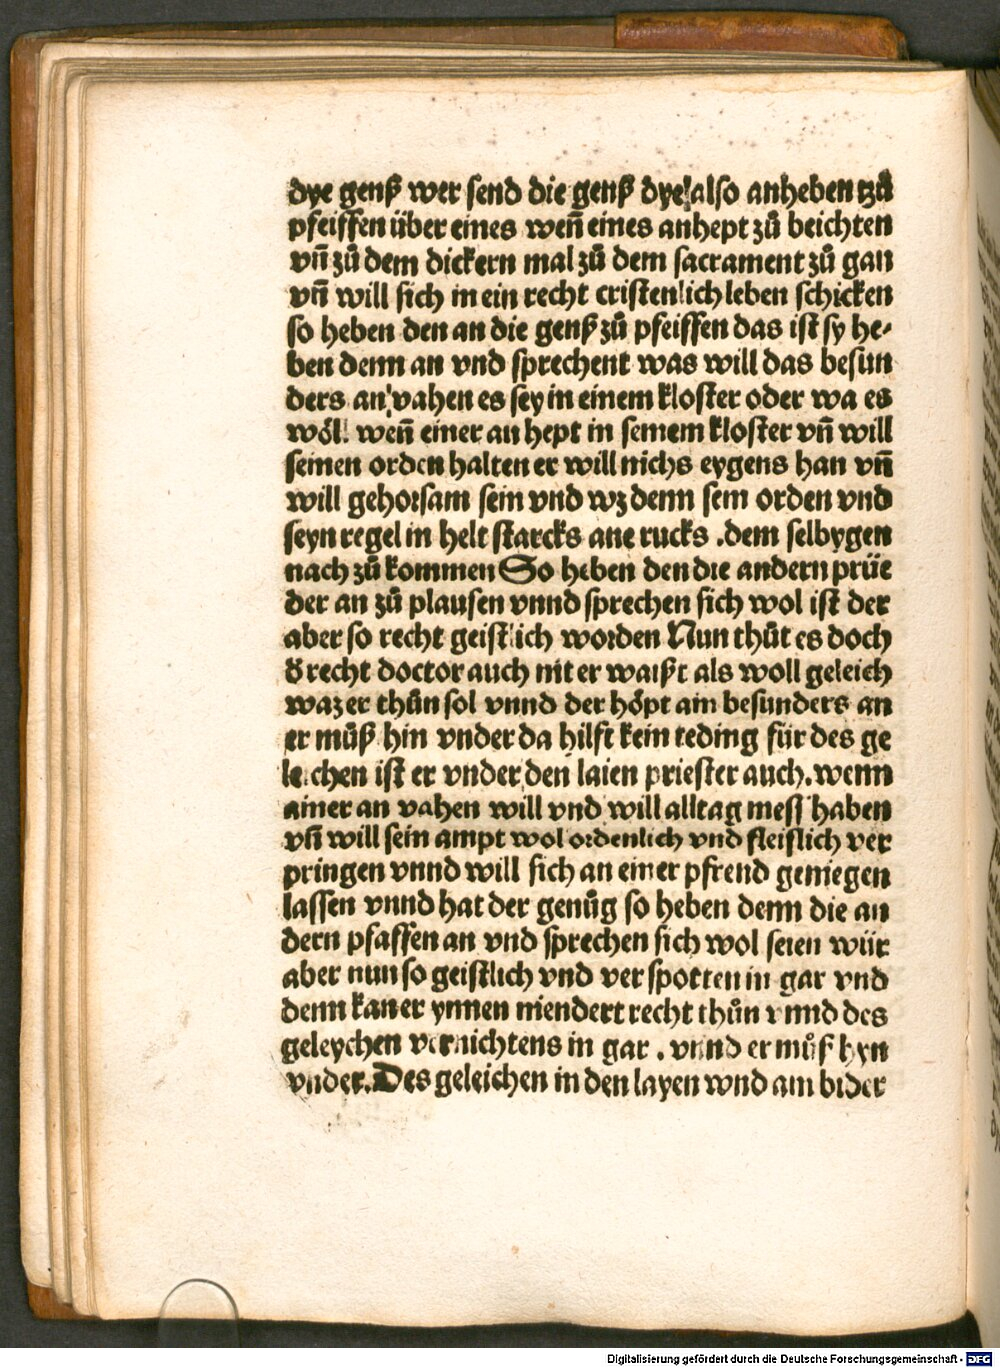 dye genß wer send die genß dye also anheben tzů
pfeiffen über eines weñ eines anhept zů beichten
vñ zů dem dickern mal zů dem sacrament zů gan
vñ will sich in ein recht cristenlich leben schicken
so heben den an die genß zů pfeiffen das ist sy he-
ben denn an vnd sprechent was will das besun
ders an vahen es sey in einem kloster oder wa es
wöll weñ einer an hept in seinem kloster vñ will
seinen orden halten er will nichs eygens han vñ
will gehorsam sein vnd wz denn sein orden vnd
seyn regel in helt starcks ane rucks .dem selbygen
nach zů kommen So heben den die andern prüe
der an zů plausen vnnd sprechen sich wol ist der
aber so recht geistlich worden Nun thůt es doch
d̕ recht doctor auch nit er waißt als woll geleich
waz er thůn sol vnnd der höpt am besunders an
er můß hin vnder da hilft kein teding für des ge
leichen ist er vnder den laien priester auch. wenn
ainer an vahen will vnd will alltag mess haben
vñ will sein ampt wol ordenlich vnd fleislich ver
pringen vnnd will sich an einer pfrend geniegen
lassen vnnd hat der genůg so heben denn die an
dern pfaffen an vnd sprechen sich wol seien wür
aber nun so geistlich vnd ver spotten in gar vnd
denn kan er ynnen niendert recht thůn vnnd des
geleychen vernichtens in gar . vnnd er můß hyn
vnder. Des geleichen in den layen wnd am bider
Digitalisierung gefördert durch die Deutsche Forschungsgemeinschaft - DFG